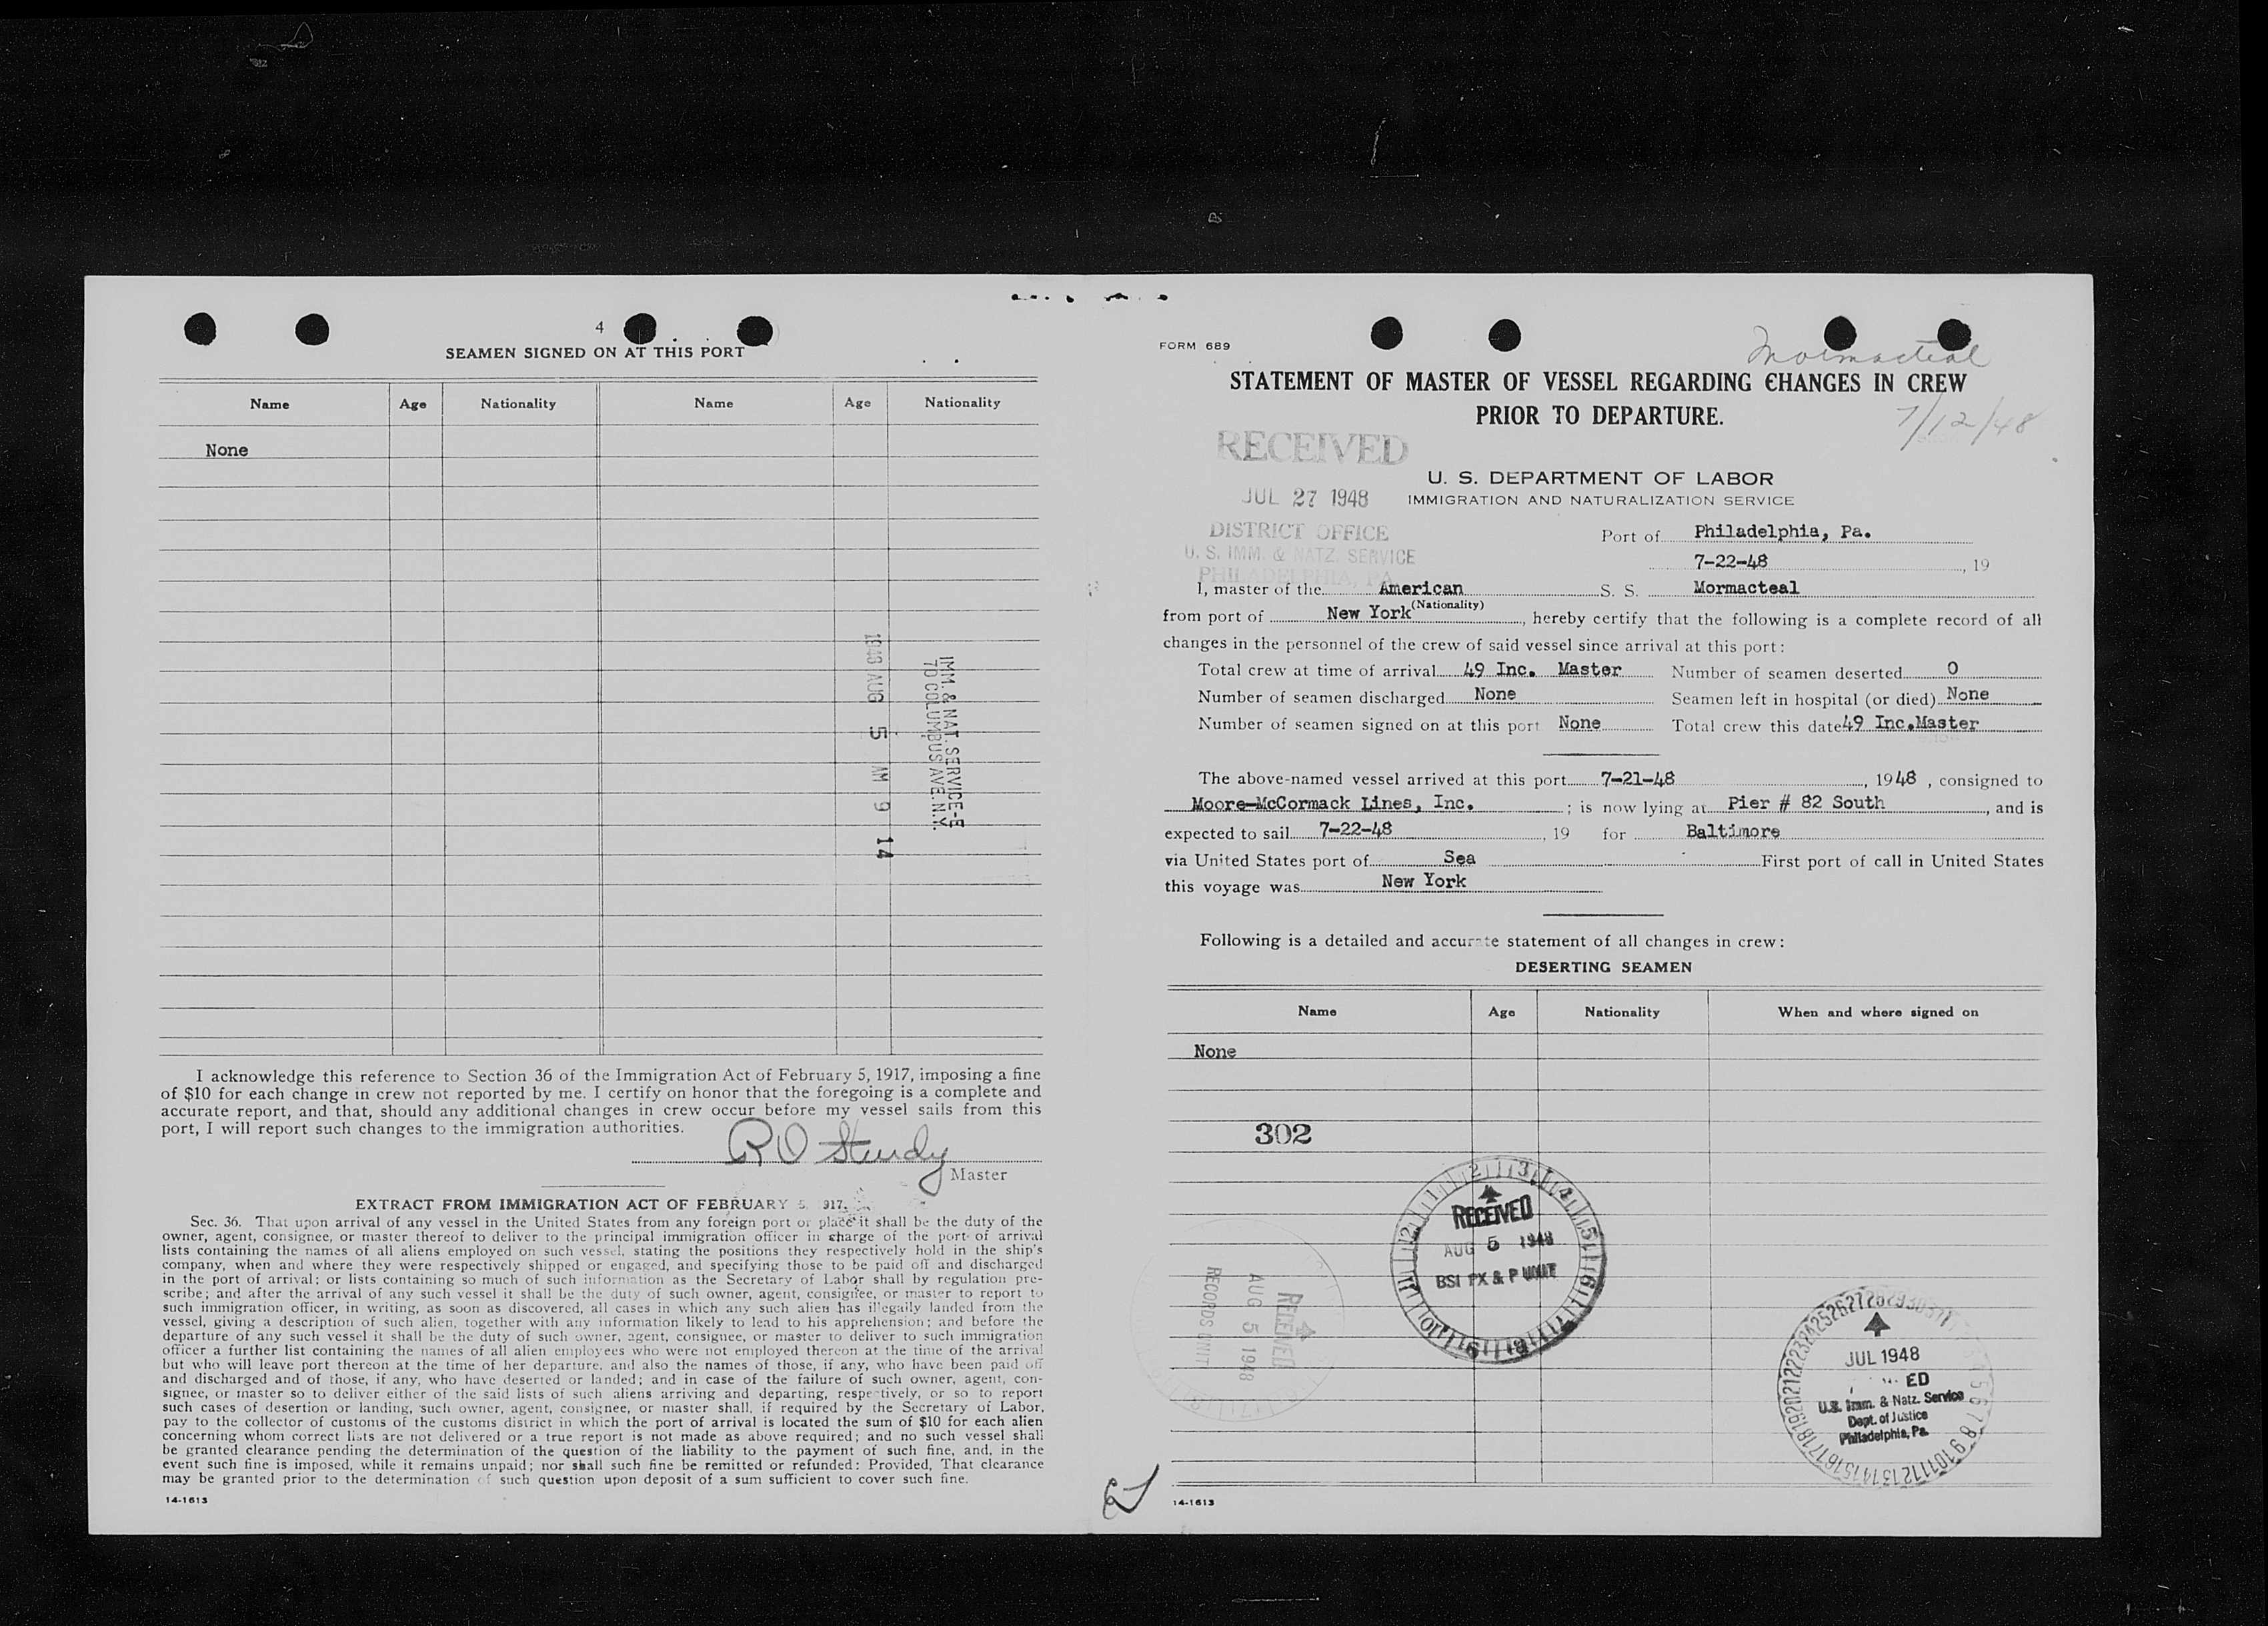 4
SEAMEN SIGNED ON AT THIS PORT
Name Age Nationality Name Age Nationality
None
1948 AUG 5 AM 9 14
IMM. & NAT. SERVICE-E
70 COLUMBUS AVE. N.Y.
I acknowledge this reference to Section 36 of the Immigration Act of February 5, 1917, imposing a fine
of $10 for each change in crew not reported by me. I certify on honor that the foregoing is a complete and
accurate report, and that, should any additional changes in crew occur before my vessel sails from this
port, I will report such changes to the immigration authorities.
R O Sturdy
Master
EXTRACT FROM IMMIGRATION ACT OF FEBRUARY 5, 917.
Sec. 36. That upon arrival of any vessel in the United States from any foreign port or place it shall be the duty of the
owner, agent, consignee, or master thereof to deliver to the principal immigration officer in charge of the port of arrival
lists containing the names of all aliens employed on such vessel, stating the positions they respectively hold in the ship's
company, when and where they were respectively shipped or engaged, and specifying those to be paid off and discharged
in the port of arrival; or lists containing so much of such information as the Secretary of Labor shall by regulation pre-
scribe; and after the arrival of any such vessel it shall be the duty of such owner, agent, consignee, or master to report to
such immigration officer, in writing, as soon as discovered, all cases in which any such alien has illegally landed from the
vessel, giving a description of such alien, together with any information likely to lead to his apprehension; and before the
departure of any such vessel it shall be the duty of such owner, agent, consignee, or master to deliver to such immigration
officer a further list containing the names of all alien employees who were not employed thereon at the time of the arrival
but who will leave port thereon at the time of her departure, and also the names of those, if any, who have been paid off
and discharged and of those, if any, who have deserted or landed; and in case of the failure of such owner, agent, con-
signee, or master so to deliver either of the said lists of such aliens arriving and departing, respectively, or so to report
such cases of desertion or landing, such owner, agent, consignee, or master shall, if required by the Secretary of Labor,
pay to the collector of customs of the customs district in which the port of arrival is located the sum of $10 for each alien
concerning whom correct lists are not delivered or a true report is not made as above required; and no such vessel shall
be granted clearance pending the determination of the question of the liability to the payment of such fine, and, in the
event such fine is imposed, while it remains unpaid; nor shall such fine be remitted or refunded: Provided, That clearance
may be granted prior to the determination of such question upon deposit of a sum sufficient to cover such fine.
14-1613
FORM 689
Mormacteal
STATEMENT OF MASTER OF VESSEL REGARDING CHANGES IN CREW
PRIOR TO DEPARTURE.
7/12/48
RECEIVED
JUL 27 1948
DISTRICT OFFICE
U. S. IMM. & NATZ. SERVICE
PHILADELPHIA, PA.
U. S. DEPARTMENT OF LABOR
IMMIGRATION AND NATURALIZATION SERVICE
Port of Philadelphia, Pa.
7-22-48, 19
I, master of the American S. S. Mormacteal
(Nationality)
from port of New York, hereby certify that the following is a complete record of all
changes in the personnel of the crew of said vessel since arrival at this port:
Total crew at time of arrival 49 Inc. Master Number of seamen deserted 0
Number of seamen discharged None Seamen left in hospital (or died) None
Number of seamen signed on at this port None Total crew this date 49 Inc.Master
The above-named vessel arrived at this port 7-21-48, 1948, consigned to
Moore-McCormack Lines, Inc. ; is now lying at Pier # 82 South, and is
expected to sail 7-22-48, 19 for Baltimore
via United States port of Sea First port of call in United States
this voyage was New York
Following is a detailed and accurate statement of all changes in crew:
DESERTING SEAMEN
Name Age Nationality When and where signed on
None
302
RECEIVED
AUG 5 1948
BSI FX & P UNIT
RECEIVED
AUG 5 1948
RECORDS UNIT
JUL 1948
ED
U.S. Imm. & Natz. Service
Dept. of Justice
Philadelphia, Pa.
14-1613